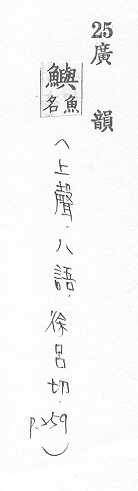 25 廣韻
鱮 魚名
(上聲.八語.徐呂切.p.259)